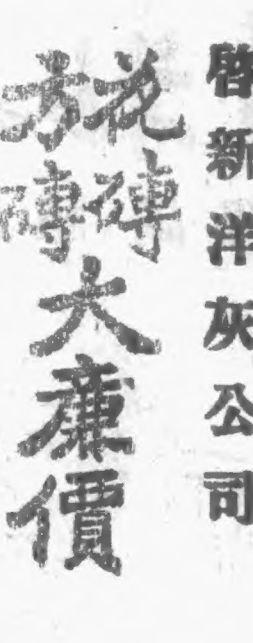 啓新洋灰公司
花磚
方磚
大廉價